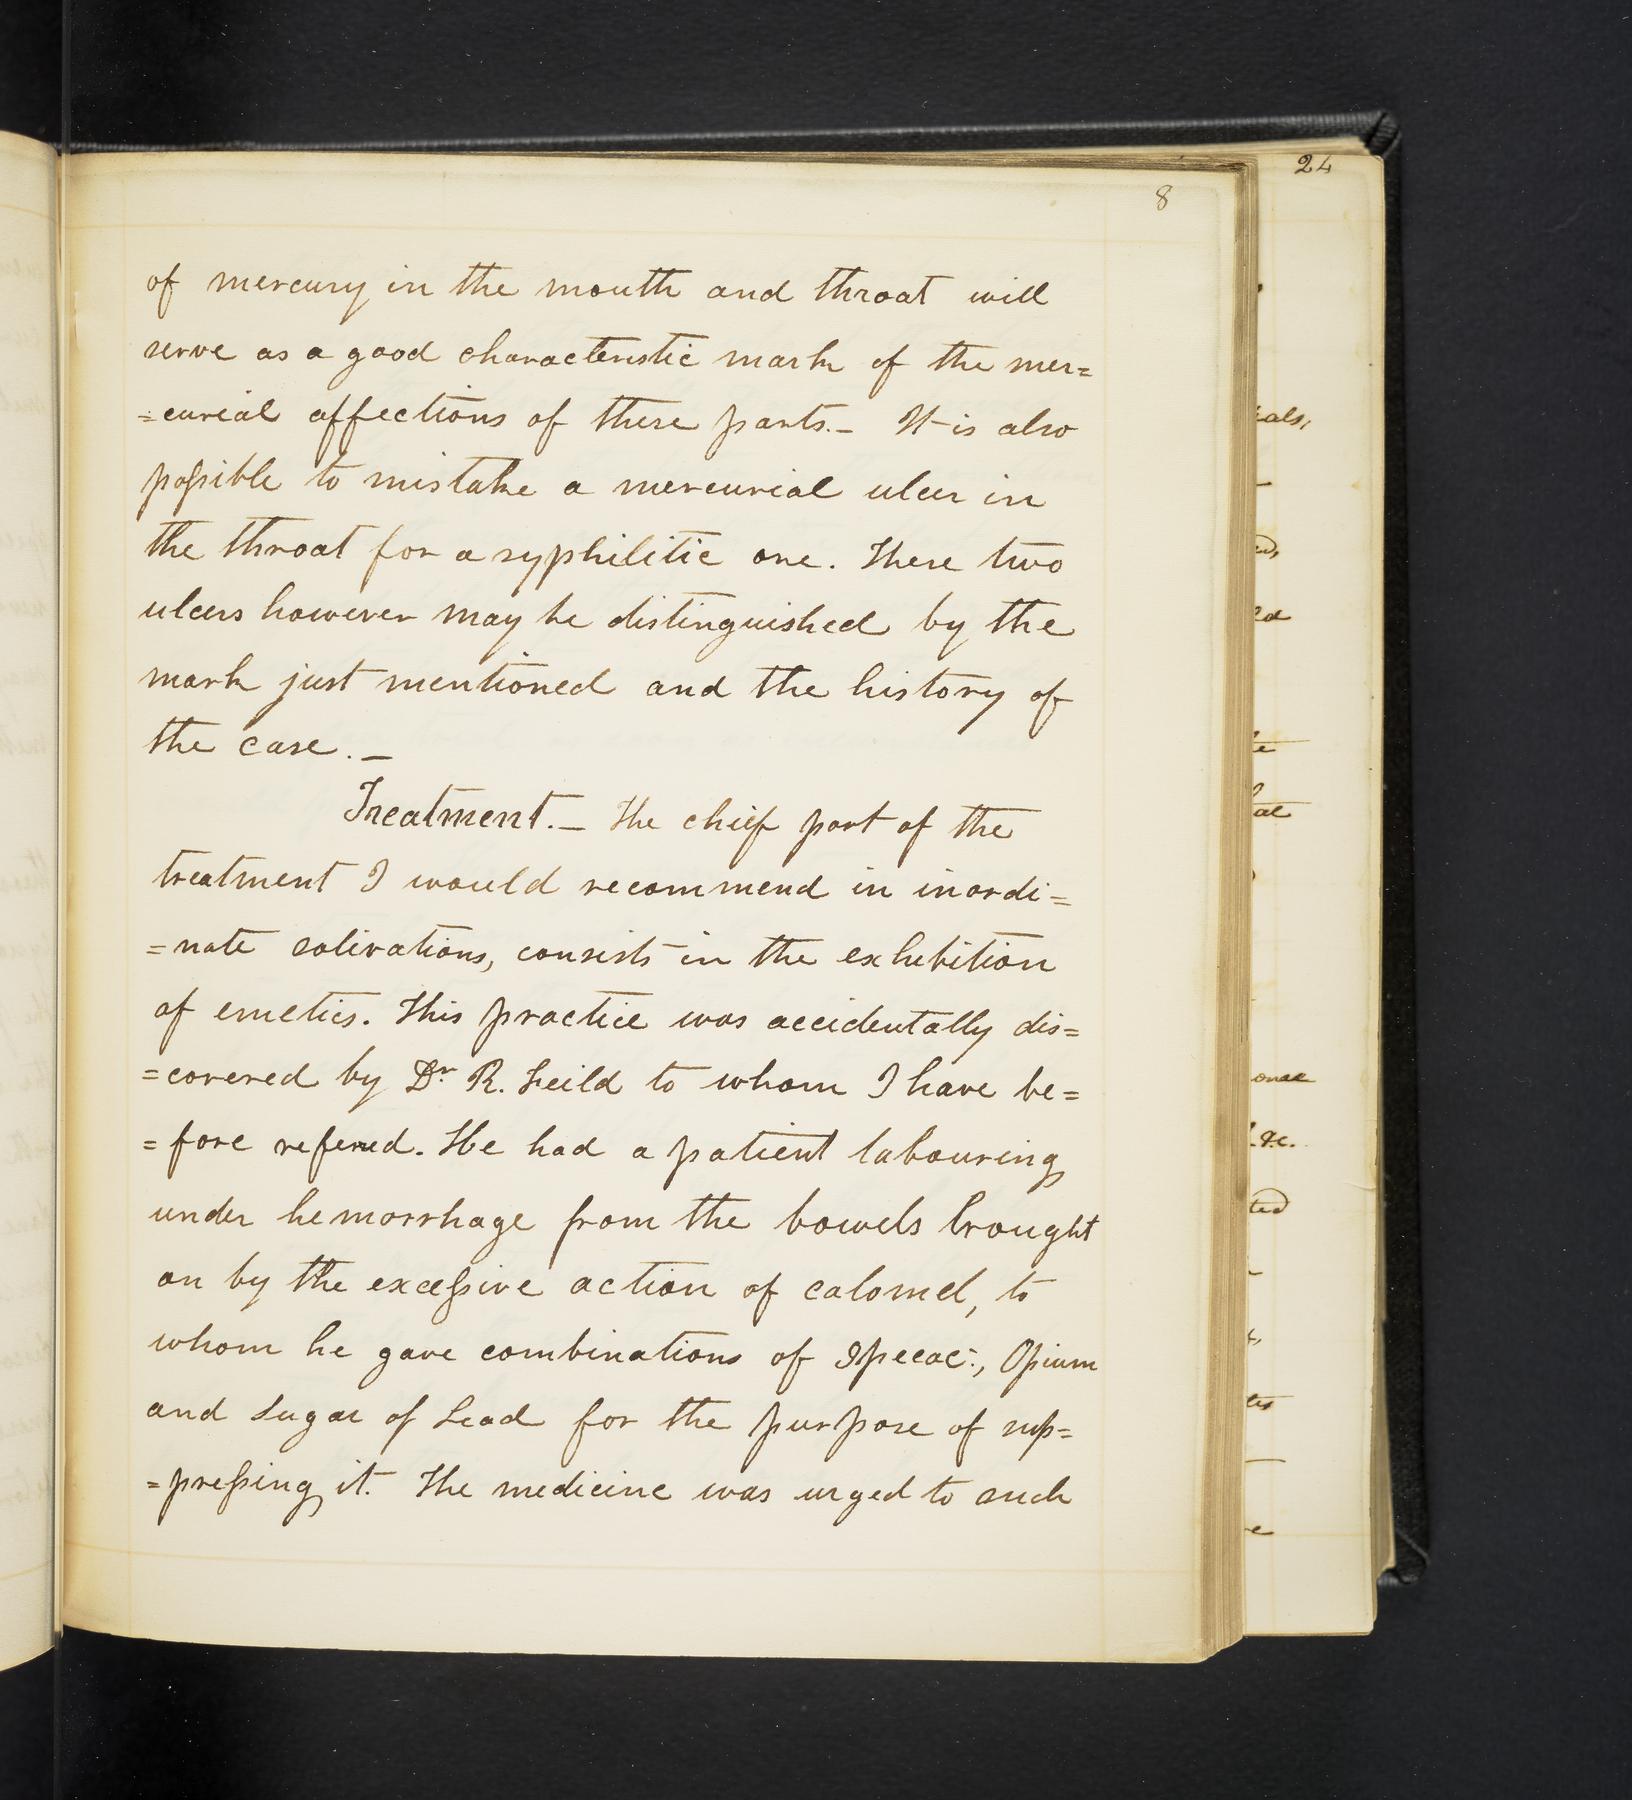 24
8
of mercury in the mouth and throat will
serve as a good characteristic mark of the mer=
=curial affections of these parts._ It is also
possible to mistake a mercurial ulcer in
the throat for a syphilitic one. These two
ulcers however may be distinguished by the
mark just mentioned and the history of
the case._
Treatment._ The chief part of the
treatment I would recommend in inordi=
=nate salivations, consists in the exhibition
of emetics. This practice was accidentally dis=
=covered by Dr R. Feild to whom I have be=
=fore refered. He had a patient labouring
under hemorrhage from the bowels brought
on by the excessive action of calomel, to
whom he gave combinations of Ipecac:, Opium
and Sugar of Lead for the purpose of sup=
=pressing it. The medicine was urged to such